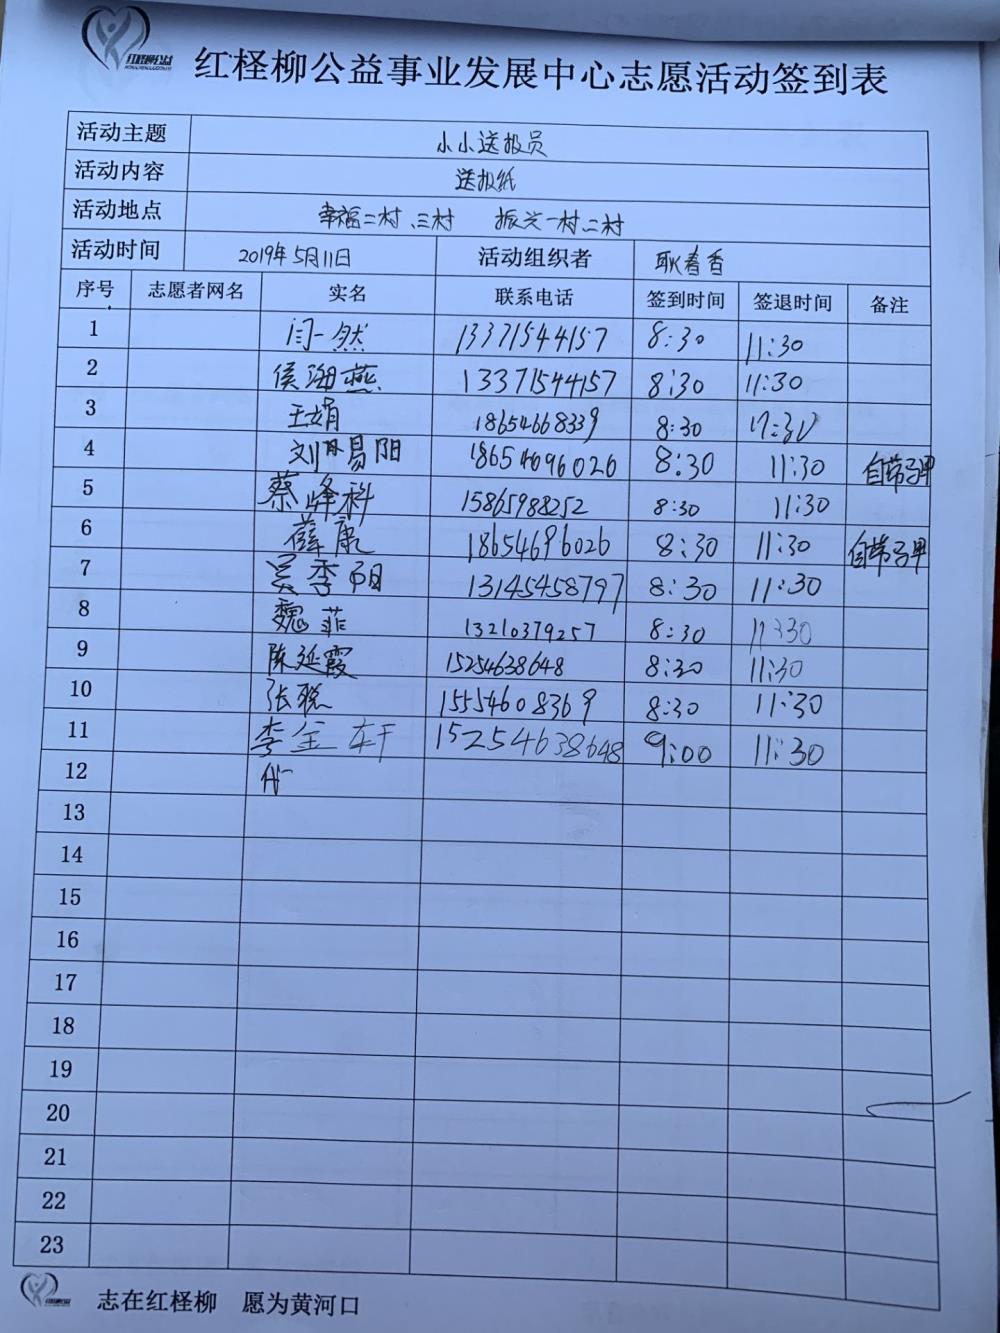 红柽柳公益
红柽柳公益事业发展中心志愿活动签到表
活动主题 小小送报员
活动内容 送报纸
活动地点 幸福二村、三村 振兴一村、二村
活动时间 2019年5月11日 活动组织者 耿春香
序号 志愿者网名 实名 联系电话 签到时间 签退时间 备注
1 闫一然 13371544157 8:30 11:30
2 侯海燕 13371544157 8:30 11:30
3 王娟 18654668339 8:30
4 刘易阳 18654696026 8:30 11:30 自带马甲
5 蔡峰科 15865988252 8:30 11:30
6 薛康 18654696026 8:30 11:30 自带马甲
7 吴季阳 13145458797 8:30 11:30
8 魏菲 13210379257 8:30 11:30
9 陈延霞 15254638648 8:30 11:30
10 张 15554608369 8:30 11:30
11 李金轩 15254638648 9:00 11:30
12
13
14
15
16
17
18
19
20
21
22
23
志在红柽柳 愿为黄河口